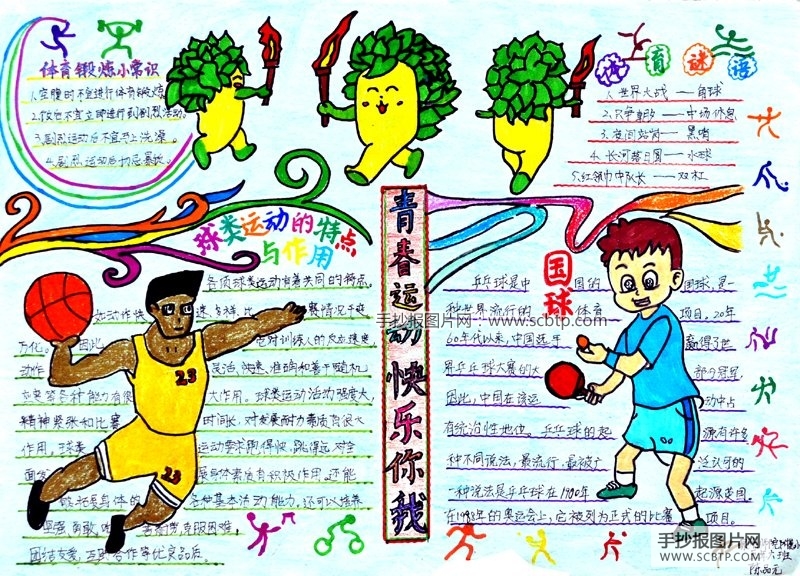 体育锻炼小常识
1.空腹时不宜进行体育锻炼
2.饭后不宜立即进行剧烈活动。
3.剧烈运动后不宜马上洗澡。
4.剧烈运动后切忌暴饮。
体育谜语
1.世界大战——角球
4.长河落日圆——水球
5.红领巾中队长——双杠
球类运动的特点
与作用
各项球类运动有着共同的特点,
运动作快速多样,比赛情况千变
万化。因此它对训练人的反应速度
动作灵活、快速、准确和善于随机
应变等各种能力有很大作用。球类运动活动强度大,
精神紧张和比赛时间长,对发展耐力素质有很大
作用。球类运动要求跑得快,跳得远,对全
面发展身体素质有积极作用,还能
够发展身体的各种基本活动能力,还可以培养
坚强勇敢
克服困难,
团结友爱,互助合作等优良品质。
青春运动快乐你我
国球
乒乓球是中国的国球,是一
种世界流行的球体育项目。20年
60年代以来,中国选手赢得了世
界乒乓球大赛的大部分冠军,
因此,中国在该运动中占
有统治性地位。乒乓球的起源有许多
种不同说法,最流行,最被广泛认可的
一种说法是乒乓球在1900年起源英国。
在1988年的奥运会上,它被列为正式的比赛项目。
23
23
手抄报图片网:www.scbtp.com
手抄报图片网
www.scbtp.com